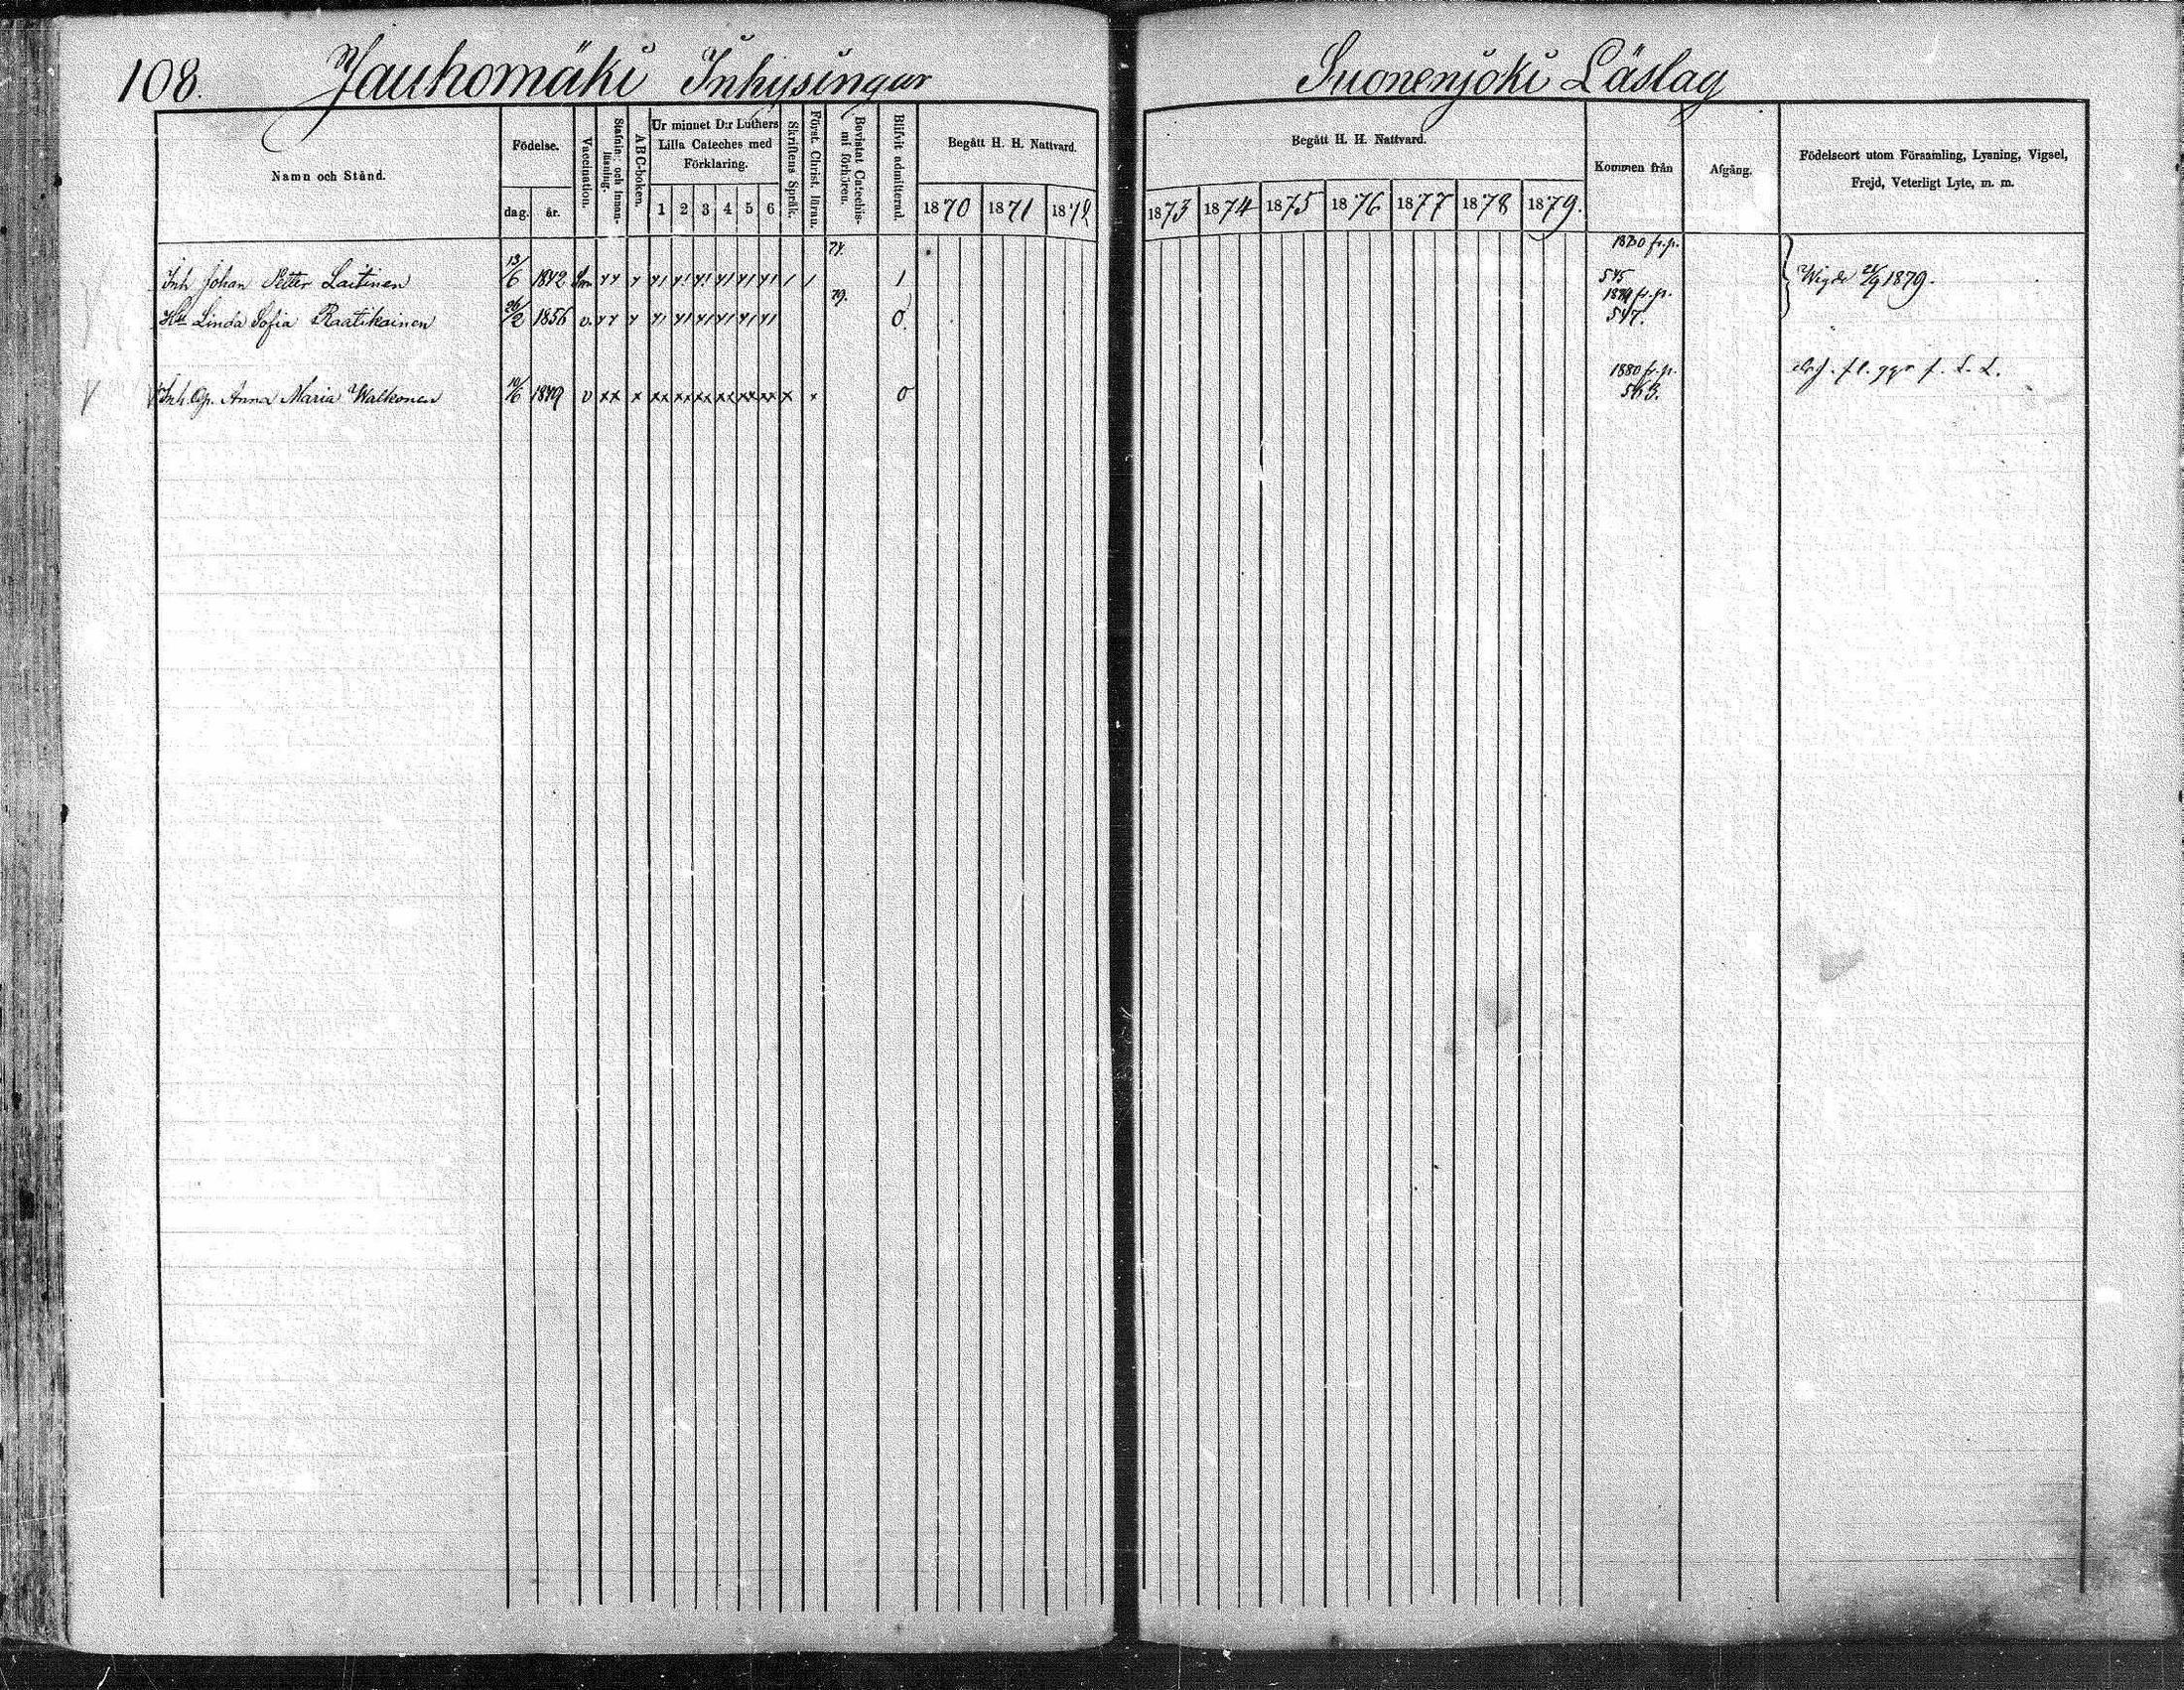 108. Jauhomäki Inhysingar Suonenjoki Läslag
Namn och Stånd.
Födelse.
dag. år.
Vaccination.
Stafnin: och Innan-
läsning.
ABC-boken.
Ur minnet D:r Luthers
Lilla Cateches med
Förklaring.
1 2 3 4 5 6
Skriftens Språk.
Först. Christ. läran.
Bevistat Catechis-
mi förhören.
Blifvit admitterad.
Begått H. H. Nattvard.
1870 1871 1872
Begått H. H. Nattvard.
1873 1874 1875 1876 1877 1878 1879.
Kommen från
Afgång.
Födelseort utom Församling, Lysning, Vigsel,
Frejd, Veterligt Lyte, m. m.
Inh Johan Petter Laitinen 13/6 1842 1 545 Wigde 1879.
Hu Linda Sofia Raatikainen 26/2 1856 v. 0. 547.
1880 fr.p.
Inh. Anna Maria Walkonen 10/6 1849 v xx x xx xx xx xx xx xx x x 0 563.